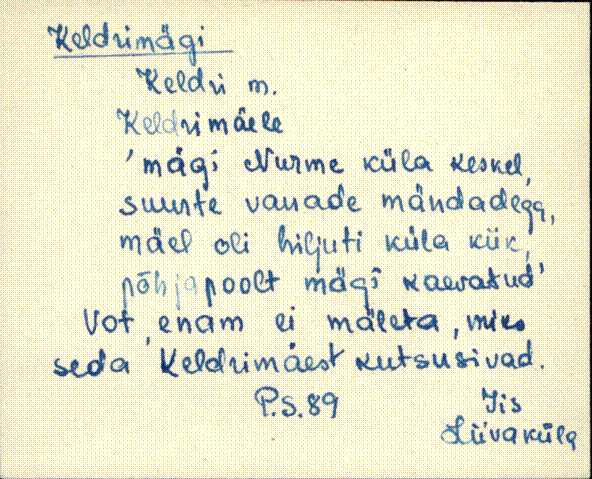 Keldrimägi
Keldri m.
Keldrimäele
'mägi Nurme küla keskel,
suurte vanade mändadega,
mäel oli hiljuti küla kiik,
põhjapoolt mägi kaevatud'
Vot, enam ei mäleta, miks
seda Keldrimäest kutsusivad.
P.S.89 Jis
Liivaküla